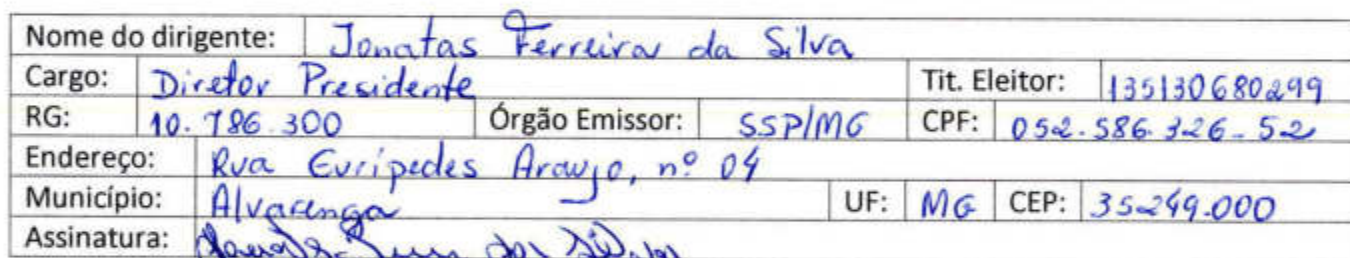 Nome do dirigente: Jonatas Ferreira da Silva
Cargo: Diretor Presidente Tit. Eleitor: 135130680299
RG: 10.786.300 Órgão Emissor: SSP/MG CPF: 052.586.326-52
Endereço: Rua Eurípedes Araujo, nº 04
Município: Alvarenga UF: MG CEP: 35249.000
Assinatura: